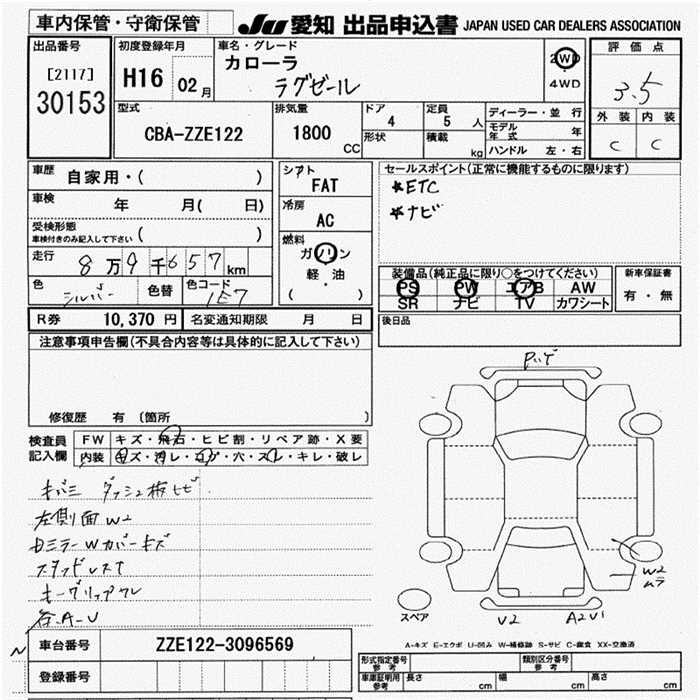 車内保管・守衛保管
JU 愛知 出品申込書 JAPAN USED CAR DEALERS ASSOCIATION
出品番号
[2117]
30153
初度登録年月
H16 02月
車名・グレード
カローラ
ラグゼール
2WD
4WD
評価点
3.5
外装 内装
C C
型式
CBA-ZZE122
排気量
1800
CC
ドア
4
形状
定員
5 人
積載
kg
ディーラー・並行
モデル年式 年
ハンドル 左・右
車歴 自家用・( )
車検 年 月( 日)
受検形態
車検付きのみ記入して下さい ( )
走行 8万9千657km
色 シルバー 色替 色コード 1E7
シフト
FAT
冷房
AC
燃料
ガソリン
軽・油
( )
セールスポイント(正常に機能するものに限ります)
★ETC
★ナビ
装備品(純正品に限り○をつけてください)
PS PW エアB AW
SR ナビ TV カワシート
新車保証書
有・無
R券 10,370 円 名変通知期限 月 日
後日品
注意事項申告欄(不具合内容等は具体的に記入して下さい)
修復歴 有 (箇所 )
検査員記入欄
FW キズ・飛石・ヒビ割・リペア跡・X要
内装 キズ・汚レ・コゲ・穴・スレ・キレ・破レ
ダッシュ板ヒビ
左側面W2
Wカバーキズ
キーグリップワレ
各A-U
スペア
W2
ムラ
V2
A2V1
A-キズ E-エクボ U-凹み W-補修跡 S-サビ C-腐食 XX-交換済
車台番号 ZZE122-3096569
登録番号
形式指定番号 参考
類別区分番号 参考
車庫証明用 参考 長さ cm 幅 cm 高さ cm